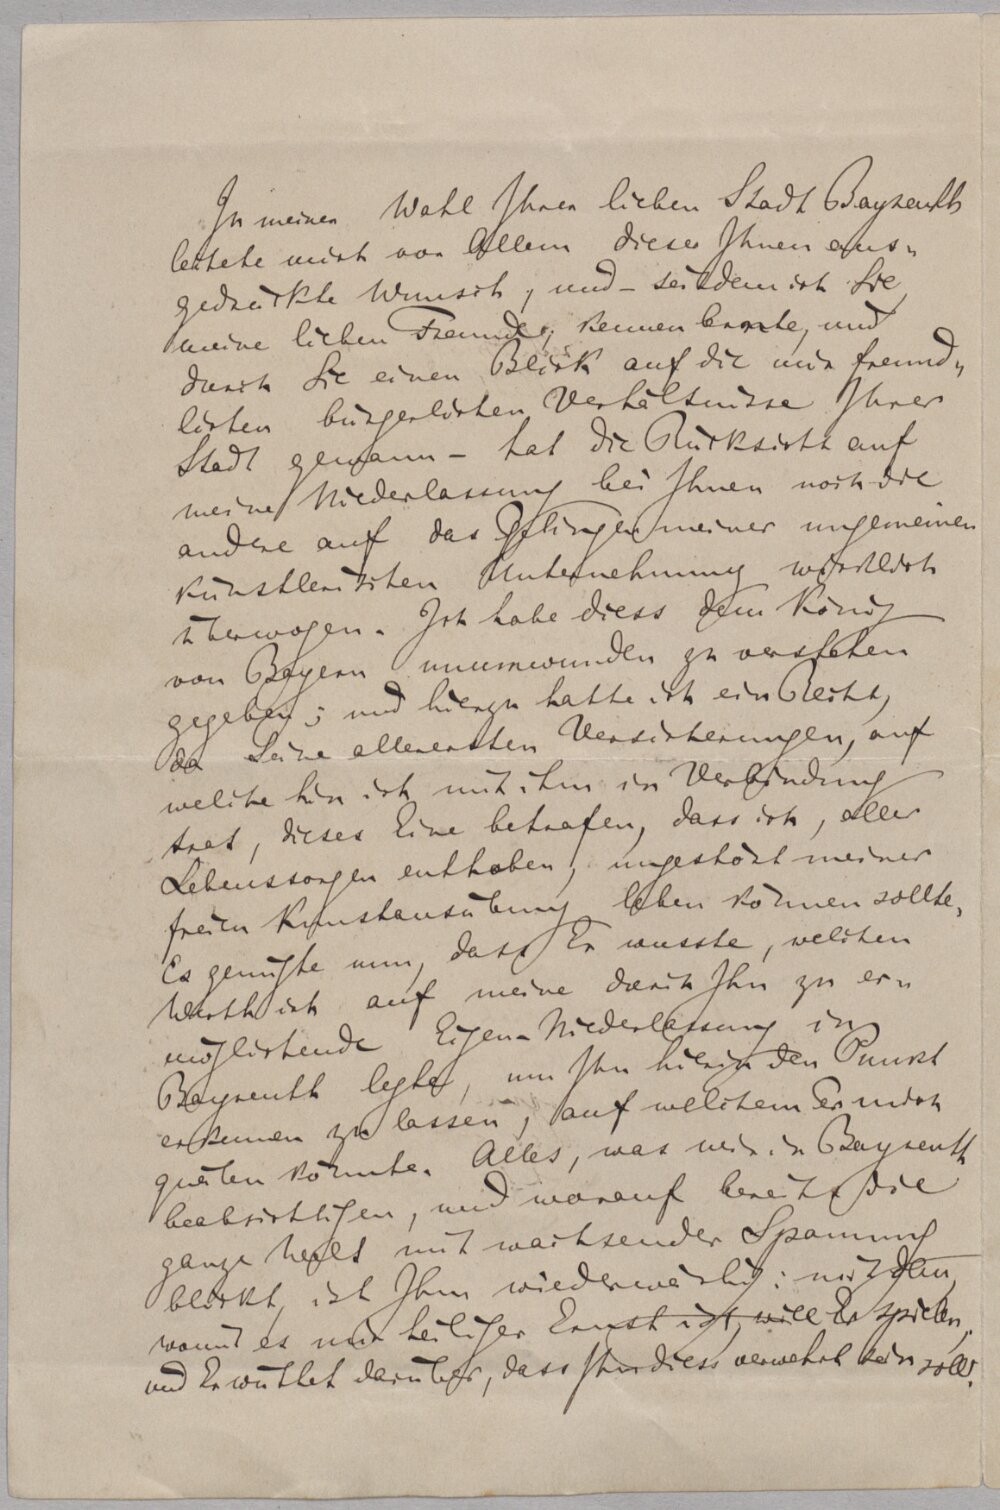 In meiner Wahl Ihrer lieben Stadt Bayreuth
leitete mich vor Allem dieser Ihnen aus-
gedrückte Wunsch, und – seitdem ich Sie,
meine lieben Freunde, kennen lernte, und
durch Sie einen Blick auf die mir freund-
lichen bürgerlichen Verhältnisse Ihrer
Stadt gewann – hat die Rücksicht auf
meine Niederlassung bei Ihnen noch die
andere auf das Gelingen meiner ungemeinen
künstlerischen Unternehmung wirklich
überwogen. Ich habe diess dem König
von Bayern unumwunden zu verstehen
gegeben; und hierzu hatte ich ein Recht,
da Seine allerersten Versicherungen, auf
welche hin ich mit ihm in Verbindung
trat, dieses Eine betrafen, dass ich, aller
Lebenssorgen enthoben, ungestört meiner
freien Kunstausübung leben können sollte.
Es genügte nun, dass Er wusste, welchen
Werth ich auf meine durch Ihn zu er-
möglichende Eigen-Niederlassung in
Bayreuth legte, um Ihn hierin den Punkt
erkennen zu lassen, auf welchem Er mich
quälen könnte. Alles, was wir in Bayreuth
beabsichtigen, und worauf bereits die
ganze Welt mit wachsender Spannung
blickt, ist Ihm wiederwärtig: mit dem,
womit es mir heiliger Ernst ist, will Er spielen,
und Er wüthet darüber, dass Ihm diess verwehrt sein soll.